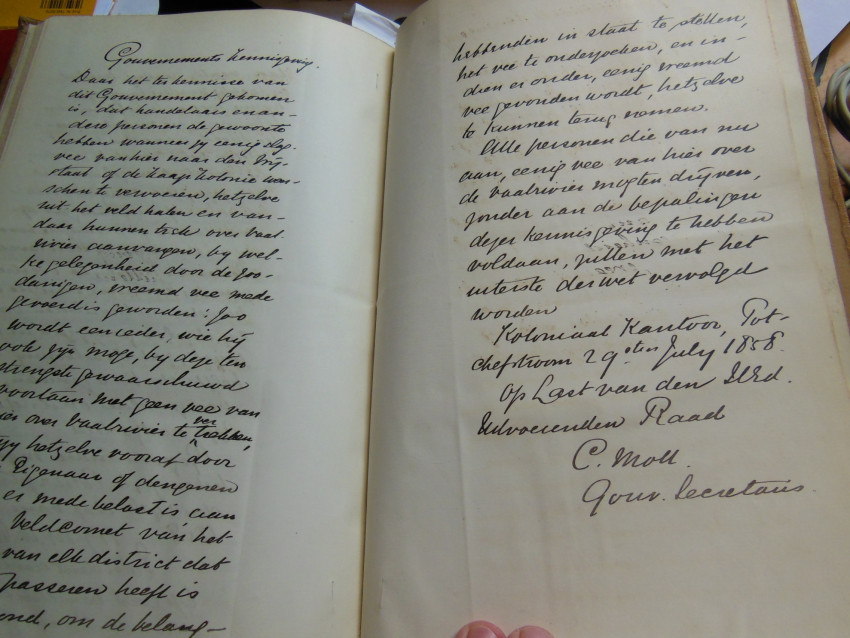 Gouvernements Kennisgeving.
Daar het ter kennisse van
dit Gouvernement gekomen
is, dat handelaars en an-
dere personen de gewoonte
hebben wanneer zy eenig slag-
vee van hier naar den Vrij-
staat of de Kaap Kolonie wen-
schen te vervoeren, hetzelve
uit het veld halen en van-
daar hunnen tock over Vaal-
rivier aanvangen, by wel-
ke gelegenheid door de zoo-
danigen, vreemd vee mede
gevoerd is geworden: Zoo
wordt een ieder, wie hij
ook zyn moge, by deze ten
strengste gewaarschuwd
voortaan met geen vee van
hier over Vaalrivier te vertrekken,
zy hetzelve vooraf door
Eigenaar of dengenen
er mede belast is aan
Veldcornet van het
van elk district dat
passeren heeft is
ond, om de belang-
hebbenden in staat te stellen,
het vee te onderzoeken, en in-
dien er onder, eenig vreemd
vee gevonden wordt, hetzelve
te kunnen terug nemen.
Alle personen die van nu
aan, eenig vee van hier over
de Vaalrivier mogten drijven,
zonder aan de bepalingen
dezer kennisgeving te hebben
voldaan, zullen met het
uiterste der wet vervolgd
worden
Koloniaal Kantoor, Pot-
chefstroom 29sten July 1858.
Op Last van den WEd.
Uitvoerenden Raad
C. Moll.
Gouv. Secretaris.